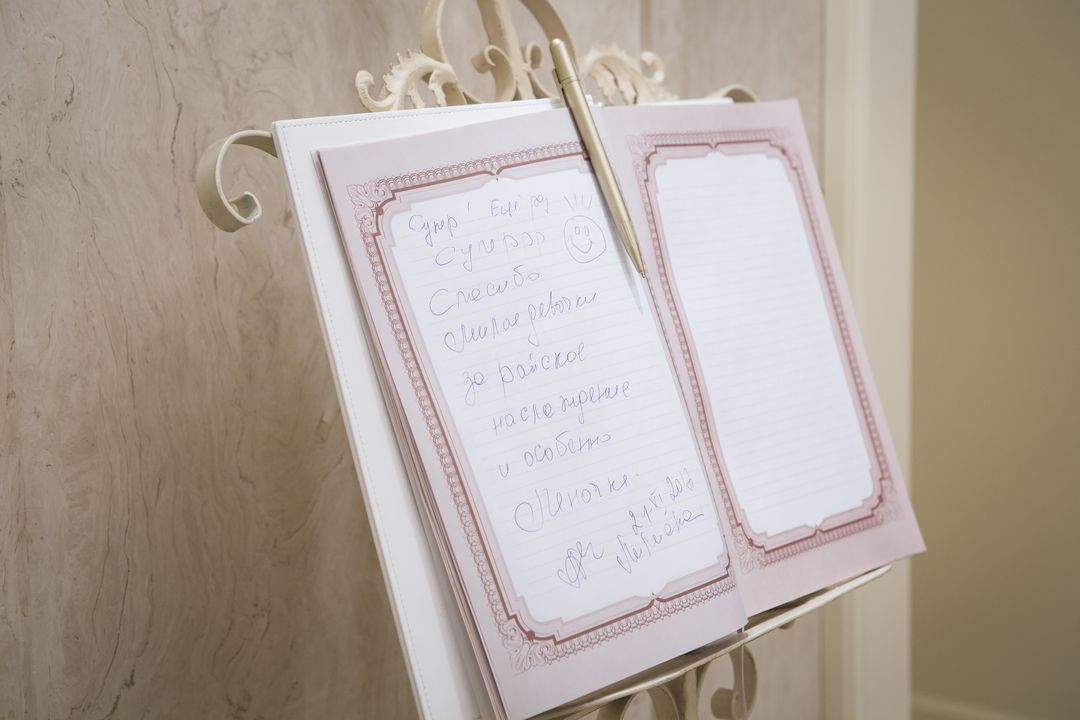 Супер! Ещё раз
супер
Спасибо
милые девочки
за райское
наслаждение
и особенно
Леночке.
24.VI